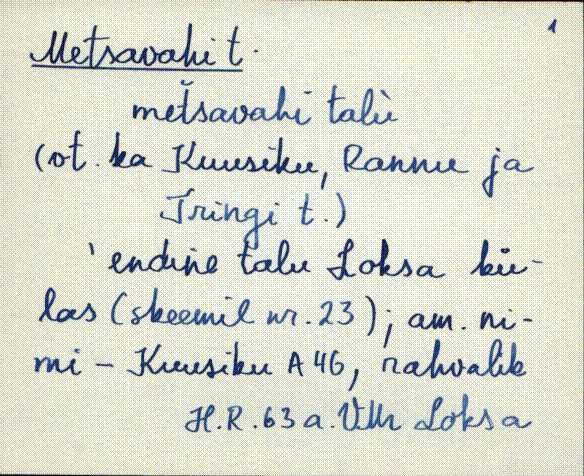 1
Metsavahi t.
metsavahi talù
(vt. ka Kuusiku, Rannu ja
Tringi t.)
'endine talu Loksa kü-
las (skeemil nr. 23); am. ni-
mi - Kuusiku A46, rahvalik
H.R. 63 a. Loksa